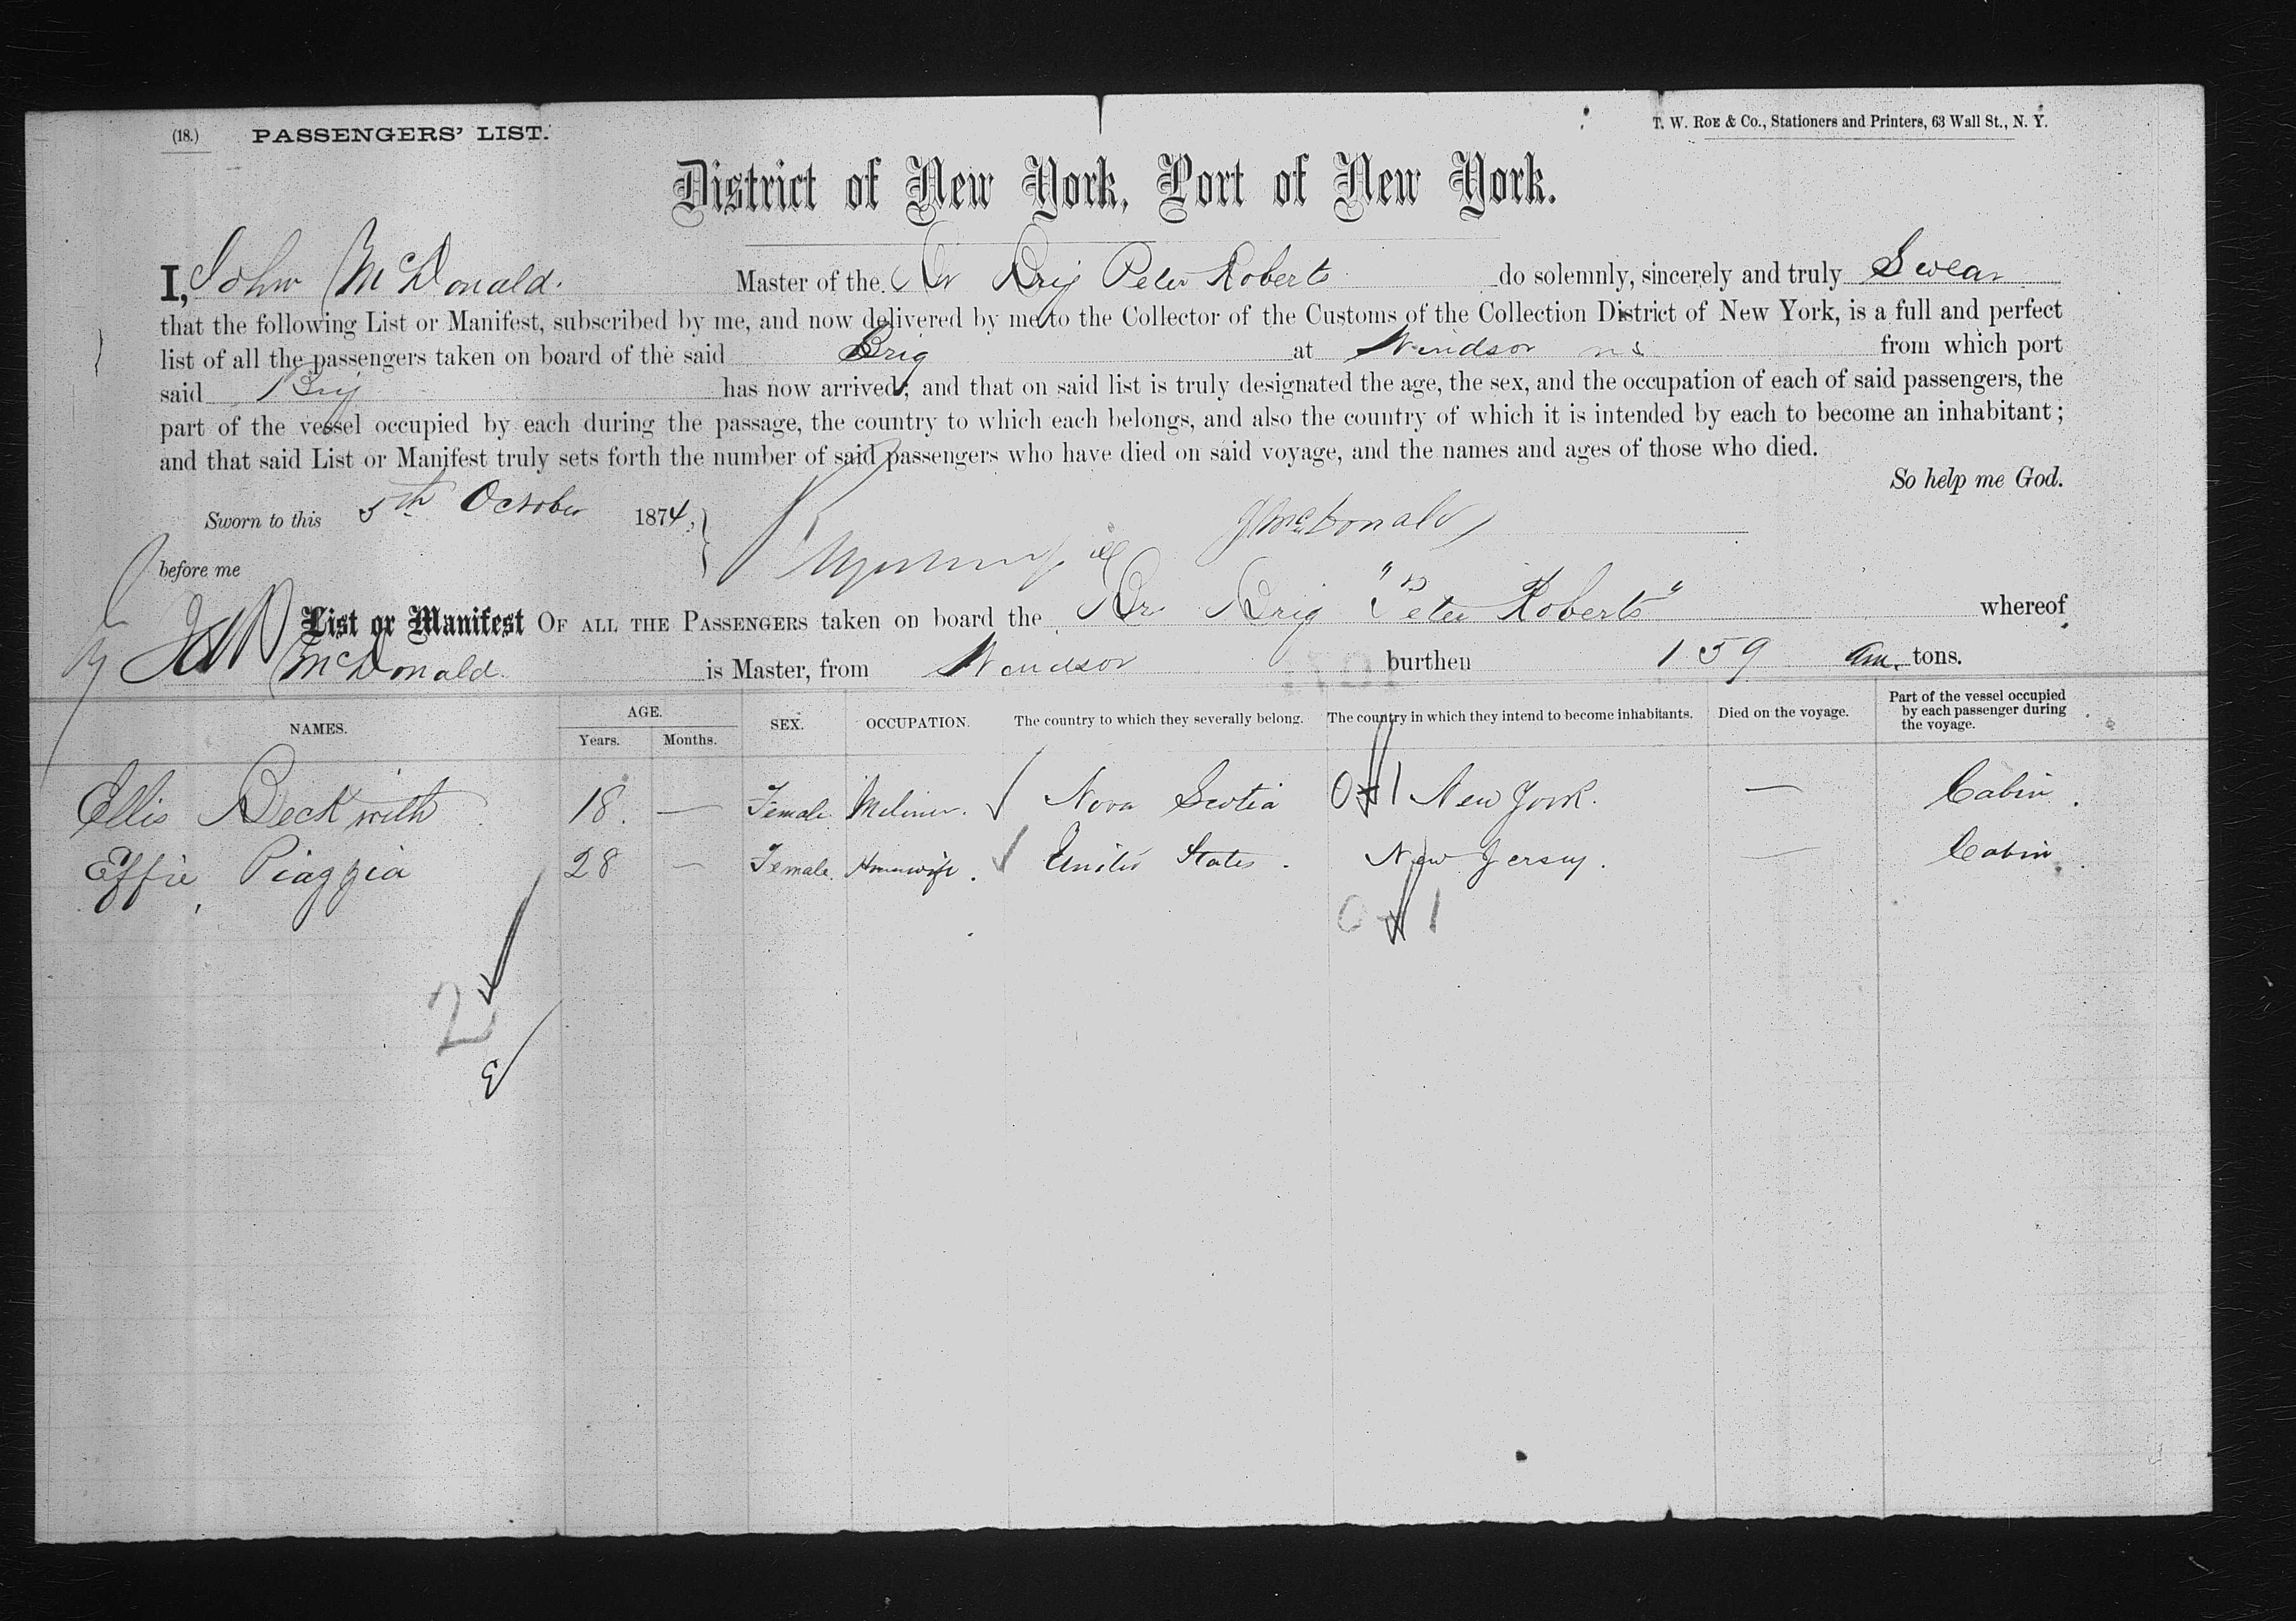 (18.) PASSENGERS' LIST. T. W. ROE & Co., Stationers and Printers, 63 Wall St., N. Y.
District of New York, Port of New York.
I, John McDonald. Master of the Br Brig Peter Roberts do solemnly, sincerely and truly Swear
that the following List or Manifest, subscribed by me, and now delivered by me to the Collector of the Customs of the Collection District of New York, is a full and perfect
list of all the passengers taken on board of the said Brig at Windsor NS from which port
said Brig has now arrived; and that on said list is truly designated the age, the sex, and the occupation of each of said passengers, the
part of the vessel occupied by each during the passage, the country to which each belongs, and also the country of which it is intended by each to become an inhabitant;
and that said List or Manifest truly sets forth the number of said passengers who have died on said voyage, and the names and ages of those who died.
So help me God.
Sworn to this 5th October 1874, J McDonald
before me
List or Manifest OF ALL THE PASSENGERS taken on board the Br Brig "Peter Roberts" whereof
McDonald is Master, from Windsor burthen 159 tons.
NAMES. AGE. Years. Months. SEX. OCCUPATION. The country to which they severally belong. The country in which they intend to become inhabitants. Died on the voyage. Part of the vessel occupied by each passenger during the voyage.
Ellis Beckwith 18. — Female Meliner. Nova Scotia 0 1 New York. — Cabin.
Effie Piaggia 28 — Female. Housewife. United States. New Jersey. — Cabin.
0 1
2